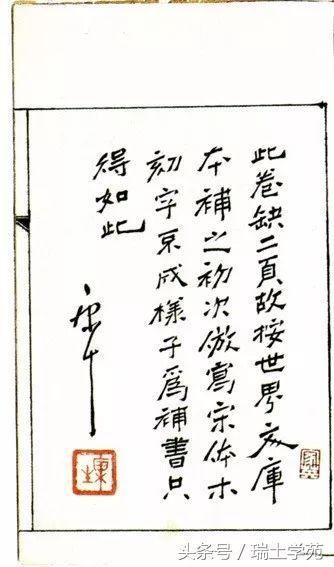 此卷缺二頁故按世界文庫
本補之初次倣寫宋体木
刻字不成樣子爲補書只
得如此
头条号 / 瑞土学苑